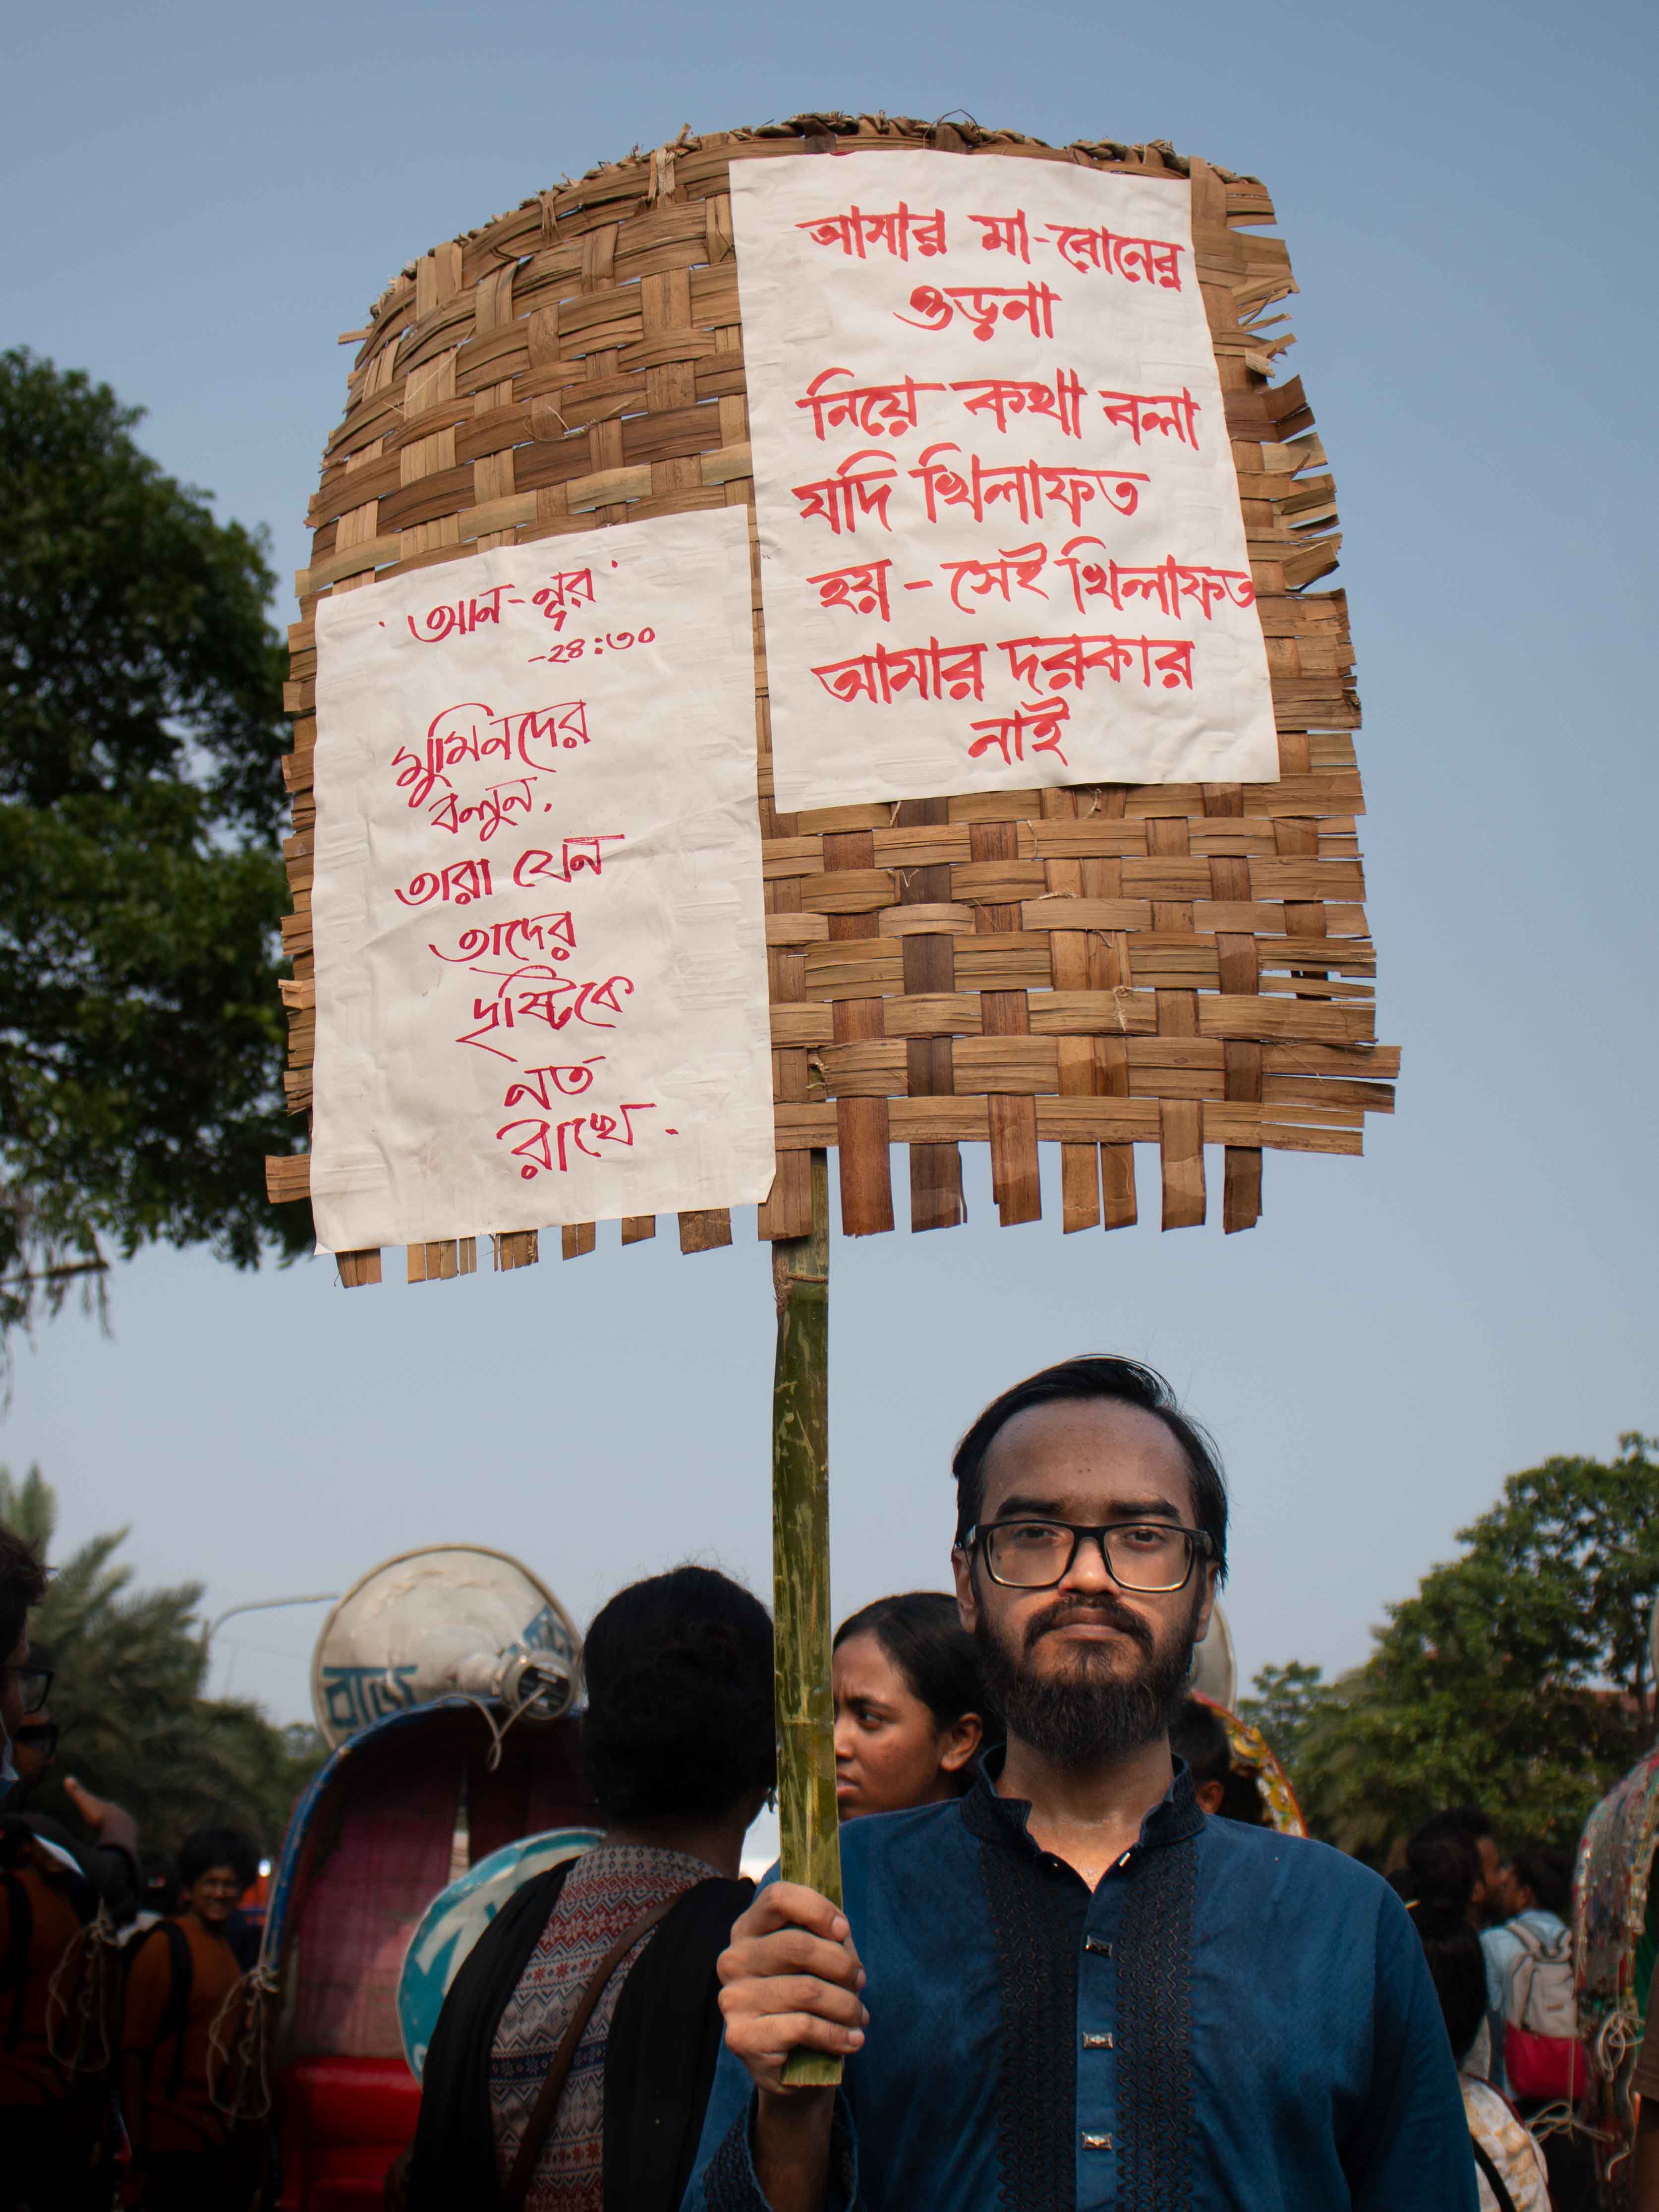 আমার মা-বোনের
ওড়না
নিয়ে কথা বলা
যদি খিলাফত
হয় - সেই খিলাফত
আমার দরকার
নাই
'আন-নূর'
-২৪:৩০
মুমিনদের
বলুন.
তারা যেন
তাদের
দৃষ্টিকে
নত
রাখে.